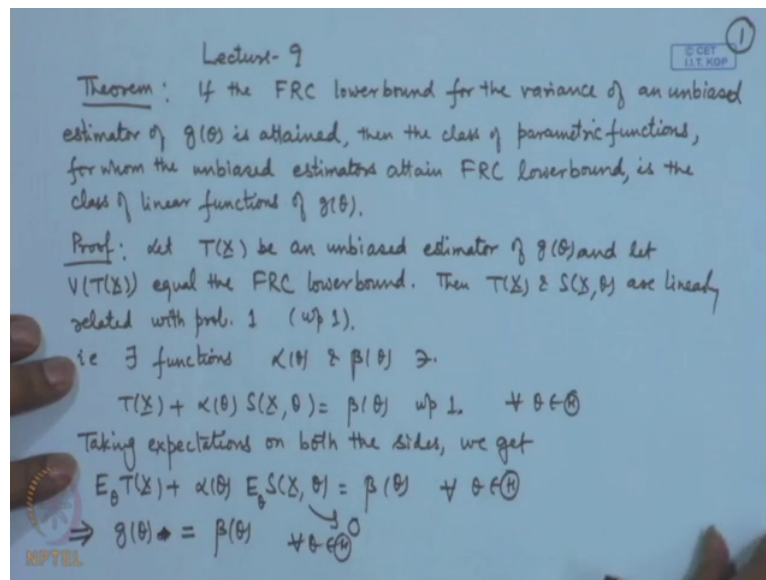 1
Lecture-9
© CET
I.I.T. KGP
Theorem: If the FRC lowerbound for the variance of an unbiased
estimator of g(θ) is attained, then the class of parametric functions,
for whom the unbiased estimators attain FRC lowerbound, is the
class of linear functions of g(θ).
Proof: Let T(X) be an unbiased estimator of g(θ) and let
V(T(X)) equal the FRC lowerbound. Then T(X) & S(X, θ) are linearly
related with prob. 1 (wp 1).
ie ∃ functions α(θ) & β(θ) ∋.
T(X) + α(θ) S(X, θ) = β(θ) wp 1. ∀ θ ∈ Ⓗ
Taking expectations on both the sides, we get
E_θ T(X) + α(θ) E_θ S(X, θ) = β(θ) ∀ θ ∈ Ⓗ
0
⇒ g(θ) = β(θ) ∀ θ ∈ Ⓗ
NPTEL